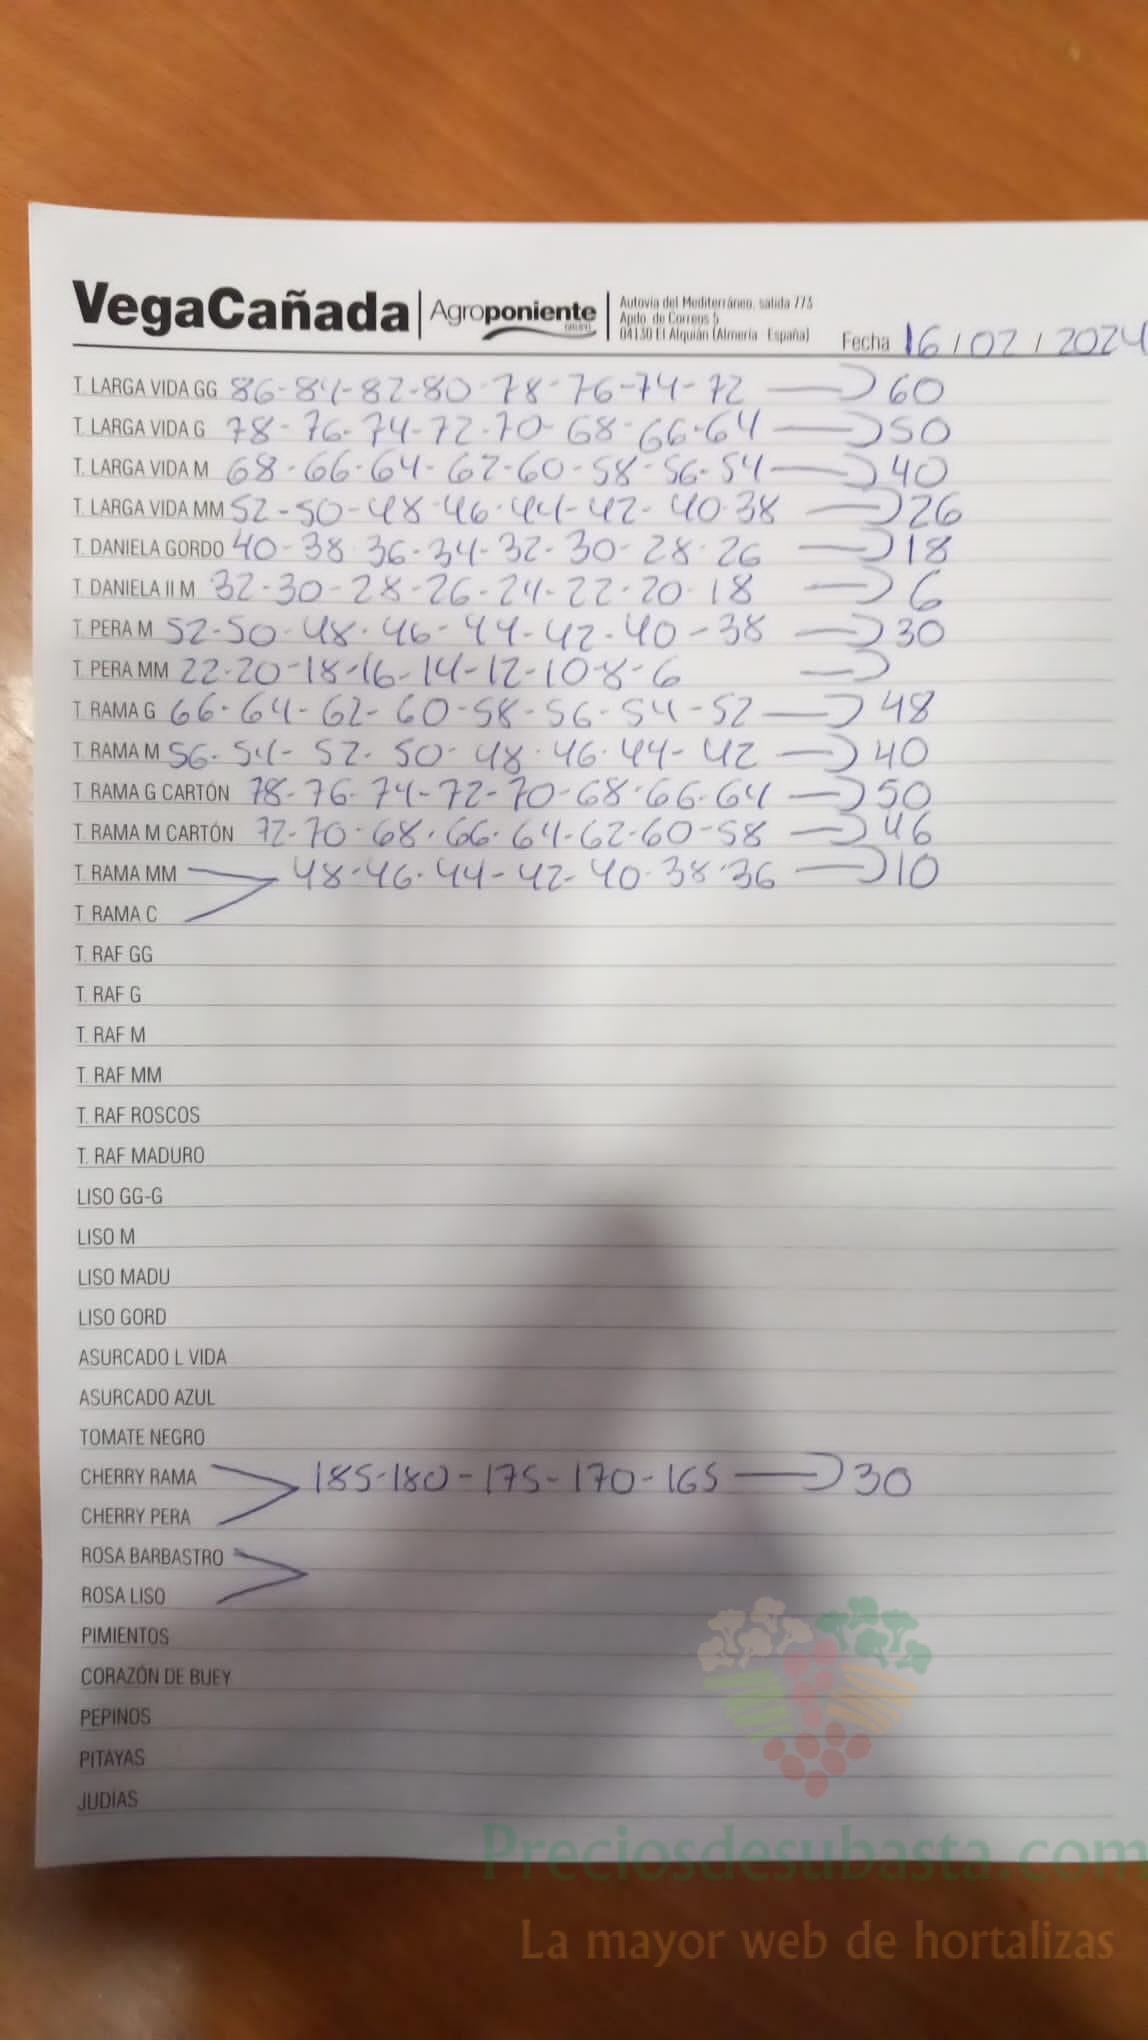 VegaCañada Agroponiente GRUPO
Autovía del Mediterráneo, salida 773
Apdo. de Correos 5
04130 El Alquián (Almería España)
Fecha 16/02/2024
T. LARGA VIDA GG 86-84-82-80-78-76-74-72 60
T. LARGA VIDA G 78-76-74-72-70-68-66-64 50
T. LARGA VIDA M 68-66-64-62-60-58-56-54 40
T. LARGA VIDA MM 52-50-48-46-44-42-40-38 26
T. DANIELA GORDO 40-38-36-34-32-30-28-26 18
T. DANIELA II M 32-30-28-26-24-22-20-18 6
T. PERA M 52-50-48-46-44-42-40-38 30
T. PERA MM 22-20-18-16-14-12-10-8-6
T. RAMA G 66-64-62-60-58-56-54-52 48
T. RAMA M 56-54-52-50-48-46-44-42 40
T. RAMA G CARTÓN 78-76-74-72-70-68-66-64 50
T. RAMA M CARTÓN 72-70-68-66-64-62-60-58 46
T. RAMA MM 48-46-44-42-40-38-36 10
T. RAMA C
T. RAF GG
T. RAF G
T. RAF M
T. RAF MM
T. RAF ROSCOS
T. RAF MADURO
LISO GG-G
LISO M
LISO MADU
LISO GORD
ASURCADO L VIDA
ASURCADO AZUL
TOMATE NEGRO
CHERRY RAMA 185-180-175-170-165 30
CHERRY PERA
ROSA BARBASTRO
ROSA LISO
PIMIENTOS
CORAZÓN DE BUEY
PEPINOS
PITAYAS
JUDÍAS
Preciosdesubasta.com
La mayor web de hortalizas